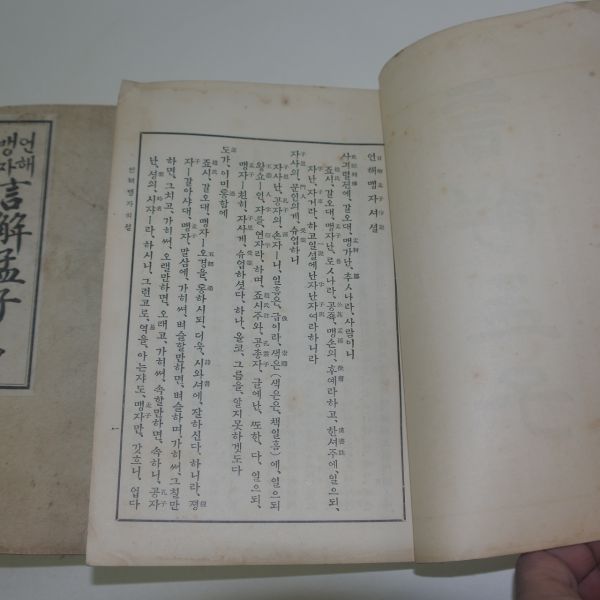 언해맹자셔셜
사긔렬젼에、갈오대、맹가난、추ㅅ나라、사람이니
죠시、갈오대、맹자난、로ㅅ나라、공족、맹손의、후예라하고、한셔주에、일으되、
자난、자거라、하고일셜에난자난자여라하니라
자사의、문인의게、슈업하니
자사난、공자의、손자ㅣ니、일흠은、급이라、색은(색은은、책일홈)에、일으되
왕쇼ㅣ인、자를、연자라、하며、죠시주와、공총자、글에난、또한、다、일으되、
맹자ㅣ친히、자사게、슈업하셧다、하나、올코、그름을、알지못하겟도다
도가、이믜통함에
죠시、갈오대、맹자ㅣ오경을、통하시되、더욱、시와셔에、잘하신다、하니라、졍
자ㅣ갈아샤대、맹자、말삼에、가히써、벼슬할만하면、벼슬하며가히써그칠만
하면、그치고、가히써、오랠만하면、오래고、가히써、속할만하면、속하니、공자
난、셩의、시쟈ㅣ라、하시니、그런고로、역을、아는쟈도、맹자만、갓흐니、업다
언해맹자셔셜
一
언해
맹자
言解孟子